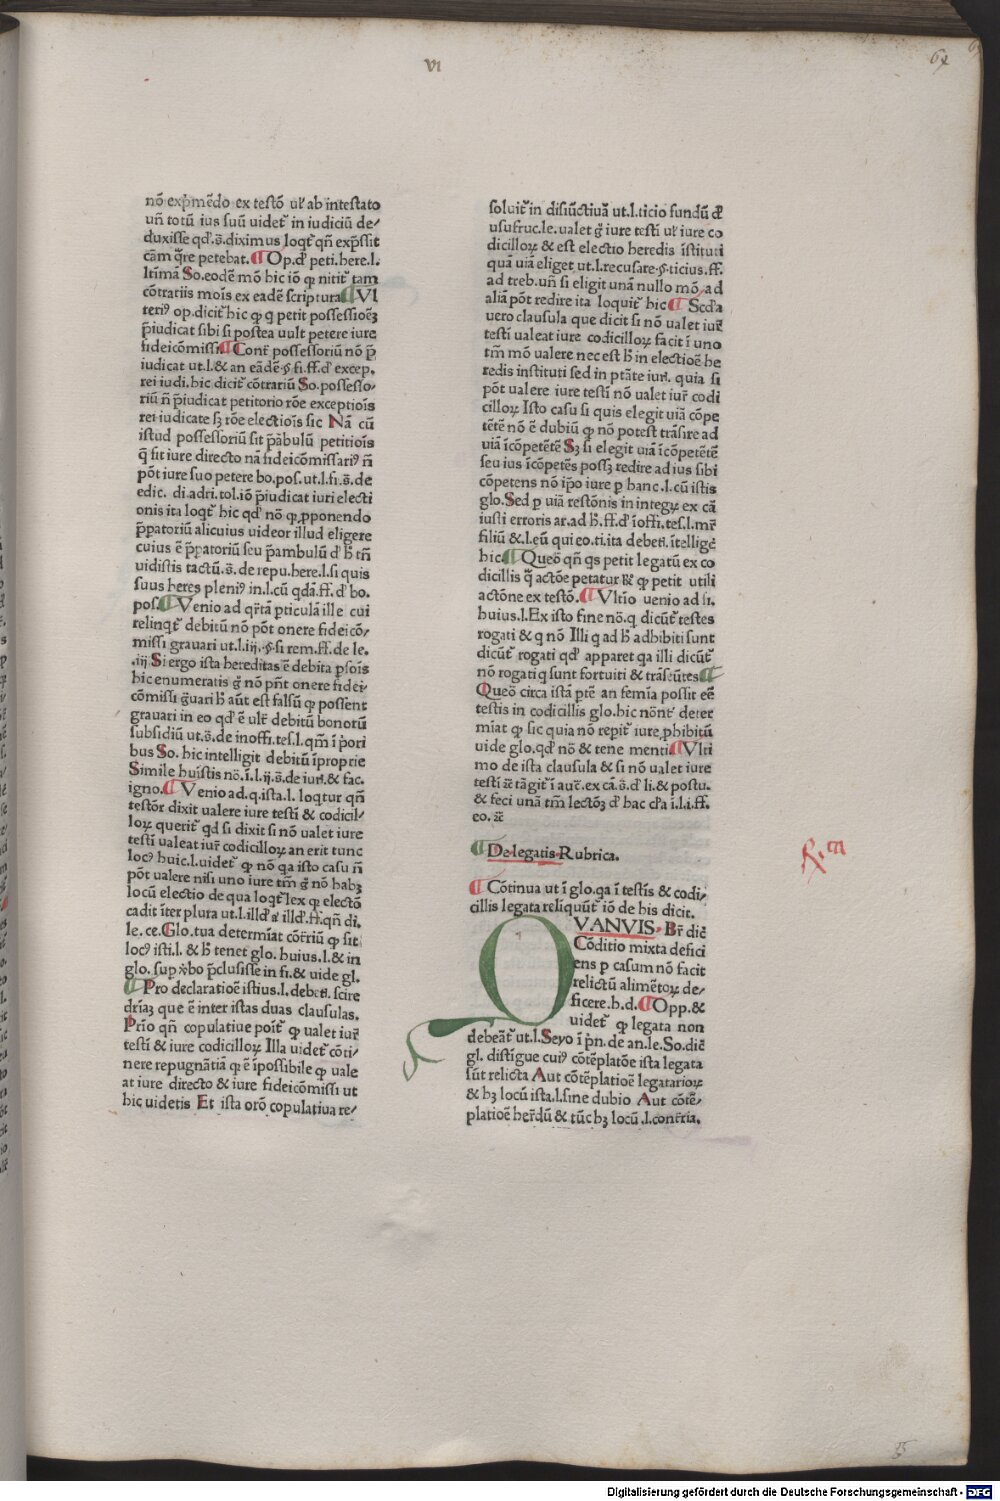 VI
64
nō exp̄mēdo ex testō ul' ab intestato
un̄ totū ius suū uidet᷑ in iudiciū de/
duxisse qd'.s̄.diximus loqt᷑ qn̄ exp̄ssit
cām q̄re petebat.¶ Op.d' peti.here.l.
ltimā So.eodē mō hic iō qꝫ nitit᷑ tam
cōtrariis mois ex eadē scriptura¶ Vl
teriꝰ op.dicit᷑ hic qꝫ q petit possessioēꝫ
p̄iudicat sibi si postea uult petere iure
fideicōmissi¶ Cont᷑ possessoriū nō p̄
iudicat ut.l.& an eādē.§.fi.ff.d' excep.
rei iudi.hic dicit᷑ cōtrariū So.possesso/
riū n̄ p̄iudicat petitorio rōe exceptiois
rei iudicate sꝫ rōe electiois sic Nā cū
istud possessoriū sit p̄abulū petitiois
q̄ sit iure directo nā fideicōmissariꝰ n̄
pōt iure suo petere bo.pos.ut.l.fi.s̄.de
edic. di.adri.tol.iō p̄iudicat iuri electi
onis ita loqt᷑ hic qd' nō qꝫ ꝓponendo
p̄patoriū alicuius uideor illud eligere
cuius ē p̄patoriū seu p̄ambulū d' h̄ tn̄
uidistis tactū.s̄.de repu.here.l.si quis
suus heres pleniꝰ in.l.cū qdā.ff.d' bo.
pos.¶ Venio ad qr̄tā ꝑticulā ille cui
relinqt᷑ debitū nō pōt onere fideicō/
missi grauari ut.l.iij.§.si rem.ff.de le.
.iij.Si ergo ista hereditas ē debita ꝑsois
hic enumeratis g̊ nō pn̄t onere fidei/
cōmissi g̊uari h̄ aūt est falsū qꝫ possent
grauari in eo qd' ē ult᷑ debitū bonorū
subsidiū ut.s̄.de inoffi.tes.l.qm̄ ī p̄ori
bus So. hic intelligit debitū īproprie
Simile huīstis no̅.ī.l.ij.s̄.de iur̄.& fac.
igno.¶ Venio ad.q.ista.l. loqtur qn̄
testor dixit ualere iure testī & codicil/
loꝝ querit᷑ qd si dixit si nō ualet iure
testī ualeat iur̄ codicilloꝝ an erit tunc
locꝰ huic.l.uidet᷑ qꝫ nō qa isto casu n̄
pōt ualere nisi uno iure tm̄ g̊ nō habꝫ
locū electio de qua loqt᷑ lex qꝫ electō
cadit īter plura ut.l.illd' a' illd'.ff.qn̄ di.
le.ce.Glo.tua determīat cōtr̄iū qꝫ sit
locꝰ isti.l.& h̄ tenet glo. huius.l.& in
glo. suꝑ ꝟbo p̄clusisse in fi.& uide gl.
¶ Pro declaratiōe istius.l. debetī. scire
dr̄iaꝫ que ē inter istas duas clausulas.
Prīo qn̄ copulatiue poīt᷑ qꝫ ualet iur̄
testī & iure codicilloꝝ Illa uidet᷑ cōti/
nere repugnātiā qꝫ ē īpossibile qꝫ uale
at iure directo & iure fideicōmissi ut
hic uidetis Et ista orō copulatiua re/
soluit᷑ in disiūctiuā ut.l.ticio fundū d'
usufruc.le.ualet g̊ iure testī ul' iure co
dicilloꝝ & est electio heredis īstituti
quā uiā eliget ut.l.recusare.§.ticius.ff.
ad treb.un̄ si eligit unā nullo mō ad
aliā pōt redire ita loquit᷑ hic¶ Scd'a
uero clausula que dicit si nō ualet iur̄
testī ualeat iure codicilloꝝ facit ī uno
tm̄ mō ualere nec est h̄ in electioē he
redis instituti sed in ptāte iuri. quia si
pōt ualere iure testī nō ualet iur̄ codi
cilloꝝ Isto casu si quis elegit uiā cōpe
tētē nō ē dubiū qꝫ nō potest trāsire ad
uiā īcōpetētē Sꝫ si elegit uiā īcōpetētē
seu ius īcōpetēs possꝫ redire ad ius sibi
cōpetens nō ip̄o iure ꝑ hanc.l.cū istis
glo.Sed ꝑ uiā restōnis in integꝝ ex cā
iusti erroris ar.ad h̄.ff.d' īoffi.tes.l.mr̄
filiū &.l.eū qui eo.ti.ita debetī.ītelligē
hic¶ Queō qn̄ qs petit legatū ex co
dicillis q̄ actōe petatur R' qꝫ petit utili
actōne ex testō.¶ Vltīo uenio ad fi.
huius.l.Ex isto fine nō.q. dicūt᷑ testes
rogati & q nō Illi q ad h̄ adhibiti sunt
dicūt᷑ rogati qd' apparet qa illi dicūt᷑
nō rogati q sunt fortuiti & trāseūtes¶
Queō circa istā ptē an femīa possit eē
testis in codicillis glo.hic nōnt᷑ deter
mīat qꝫ sic quia nō repit᷑ iure ꝓhibitū
uide glo.qd' nō & tene menti¶ Vlti
mo de ista clausula & si nō ualet iure
testī &c̄ tāgit᷑ ī aut᷑.ex cā.s̄.d' li.& postu.
& feci unā tm̄ lectōꝫ d' hac cl'a ī.l.i.ff.
eo. &c̄
¶ De legatis Rubrica.
¶ Cōtinua ut ī glo.qa ī testīs & codi/
cillis legata relīquūt᷑ iō de his dicit.
QVANVIS. Br̄ dic̄
Cōditio mixta defici
ens ꝑ casum nō facit
relictū alimētoꝝ de/
ficere.h.d.¶ Opp.&
uidet᷑ qꝫ legata non
debeāt᷑ ut.l.Seyo ī pn̄.de an.le.So.dic̄
gl. distīgue cuiꝰ cōtēplatōe ista legata
sūt relicta Aut cōtēplatioē legatarioꝝ
& hꝫ locū ista.l.sine dubio Aut cōtē/
platioē her̄dū & tūc hꝫ locū.l.contr̄ria.
Digitalisierung gefördert durch die Deutsche Forschungsgemeinschaft - DFG